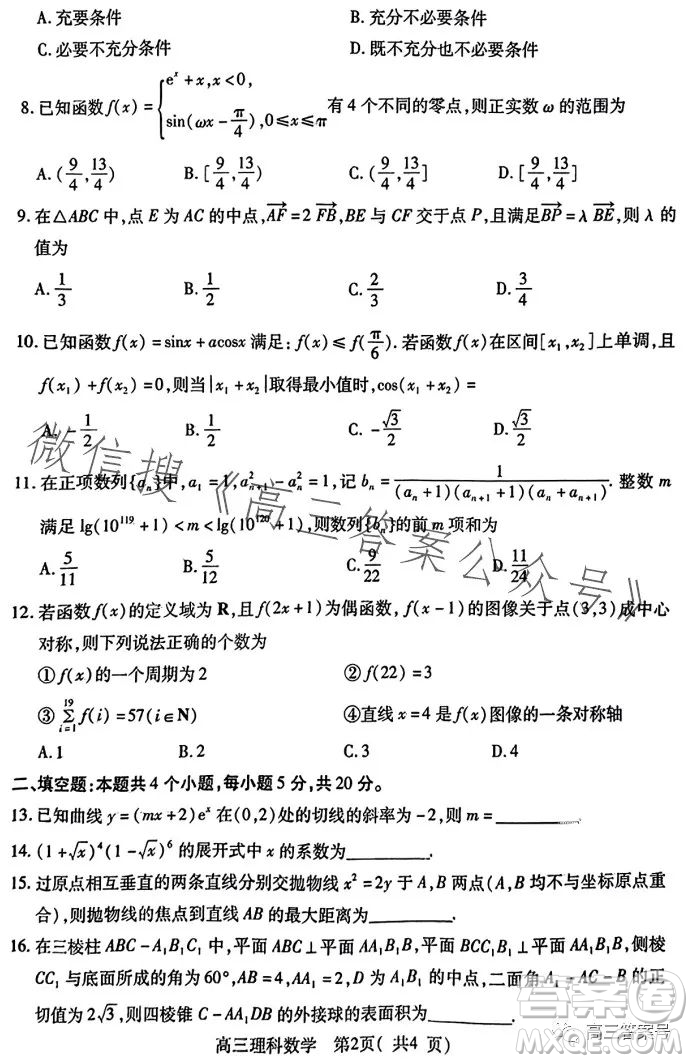 A.充要条件 B.充分不必要条件
C.必要不充分条件 D.既不充分也不必要条件
8.已知函数f(x)={e^x+x,x<0, sin(ωx-π/4),0≤x≤π 有4个不同的零点,则正实数ω的范围为
A.(9/4,13/4) B.[9/4,13/4) C.(9/4,13/4] D.[9/4,13/4]
9.在△ABC中,点E为AC的中点,AF→=2FB→,BE与CF交于点P,且满足BP→=λBE→,则λ的
值为
A.1/3 B.1/2 C.2/3 D.3/4
10.已知函数f(x)=sinx+acosx满足:f(x)≤f(π/6).若函数f(x)在区间[x₁,x₂]上单调,且
f(x₁)+f(x₂)=0,则当|x₁+x₂|取得最小值时,cos(x₁+x₂)=
A.-1/2 B.1/2 C.-√3/2 D.√3/2
11.在正项数列{aₙ}中,a₁=1,a²ₙ₊₁-a²ₙ=1,记bₙ=1/((aₙ+1)(aₙ₊₁+1)(aₙ+aₙ₊₁)).整数m
满足lg(10¹¹⁹+1)<m<lg(10¹²⁰+1),则数列{bₙ}的前m项和为
A.5/11 B.5/12 C.9/22 D.11/24
12.若函数f(x)的定义域为R,且f(2x+1)为偶函数,f(x-1)的图像关于点(3,3)成中心
对称,则下列说法正确的个数为
①f(x)的一个周期为2 ②f(22)=3
③∑_{i=1}^{19}f(i)=57(i∈N) ④直线x=4是f(x)图像的一条对称轴
A.1 B.2 C.3 D.4
二、填空题:本题共4个小题,每小题5分,共20分。
13.已知曲线y=(mx+2)e^x在(0,2)处的切线的斜率为-2,则m=________
14.(1+√x)⁴(1-√x)⁶的展开式中x的系数为________.
15.过原点相互垂直的两条直线分别交抛物线x²=2y于A,B两点(A,B均不与坐标原点重
合),则抛物线的焦点到直线AB的最大距离为________.
16.在三棱柱ABC-A₁B₁C₁中,平面ABC⊥平面AA₁B₁B,平面BCC₁B₁⊥平面AA₁B₁B,侧棱
CC₁与底面所成的角为60°,AB=4,AA₁=2,D为A₁B₁的中点,二面角A₁-AC-B的正
切值为2√3,则四棱锥C-AA₁DB的外接球的表面积为________.
高三理科数学 第2页( 共4 页)
微信搜《高三答案公众号》
答案圈
高三答案号